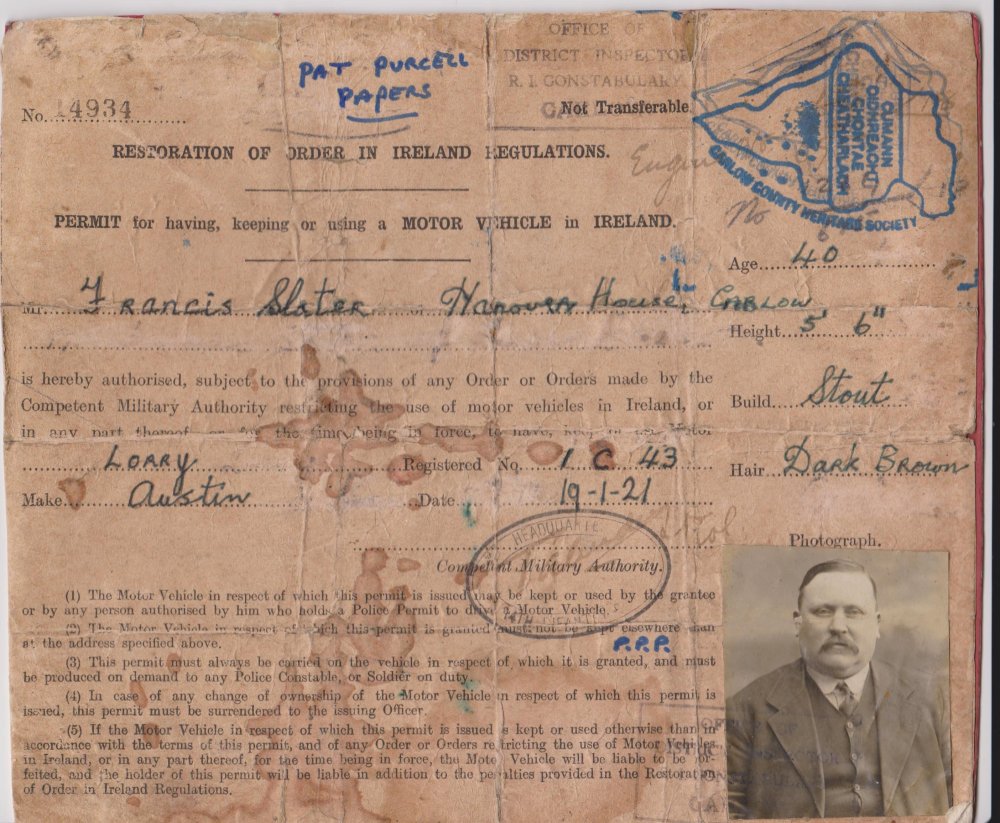 OFFICE OF
DISTRICT INSPECTOR
R. I. CONSTABULARY
PAT PURCELL
PAPERS
No. 14934
Not Transferable.
CUMANN
OIDHREACHT
CHONTAE
CHEATHARLACH
CARLOW COUNTY HERITAGE SOCIETY
RESTORATION OF ORDER IN IRELAND REGULATIONS.
No
PERMIT for having, keeping or using a MOTOR VEHICLE in IRELAND.
Age 40
Mr. Francis Slater of Hanover House, Carlow
Height 5' 6"
is hereby authorised, subject to the provisions of any Order or Orders made by the
Competent Military Authority restricting the use of motor vehicles in Ireland, or
Build Stout
in any part thereof, or for the time being in force, to have, keep or use Motor
Lorry Registered No. 1 C 43
Hair Dark Brown
Make Austin Date 19-1-21
Photograph.
HEADQUARTE
Competent Military Authority.
14TH INFANT
(1) The Motor Vehicle in respect of which this permit is issued may be kept or used by the grantee
or by any person authorised by him who holds a Police Permit to drive a Motor Vehicle.
(2) The Motor Vehicle in respect of which this permit is granted must not be kept elsewhere than
at the address specified above.
P.P.P.
(3) This permit must always be carried on the vehicle in respect of which it is granted, and must
be produced on demand to any Police Constable, or Soldier on duty.
(4) In case of any change of ownership of the Motor Vehicle in respect of which this permit is
issued, this permit must be surrendered to the issuing Officer.
(5) If the Motor Vehicle in respect of which this permit is issued is kept or used otherwise than in
accordance with the terms of this permit, and of any Order or Orders restricting the use of Motor Vehicles
in Ireland, or in any part thereof, for the time being in force, the Motor Vehicle will be liable to be for-
feited, and the holder of this permit will be liable in addition to the penalties provided in the Restoration
of Order in Ireland Regulations.